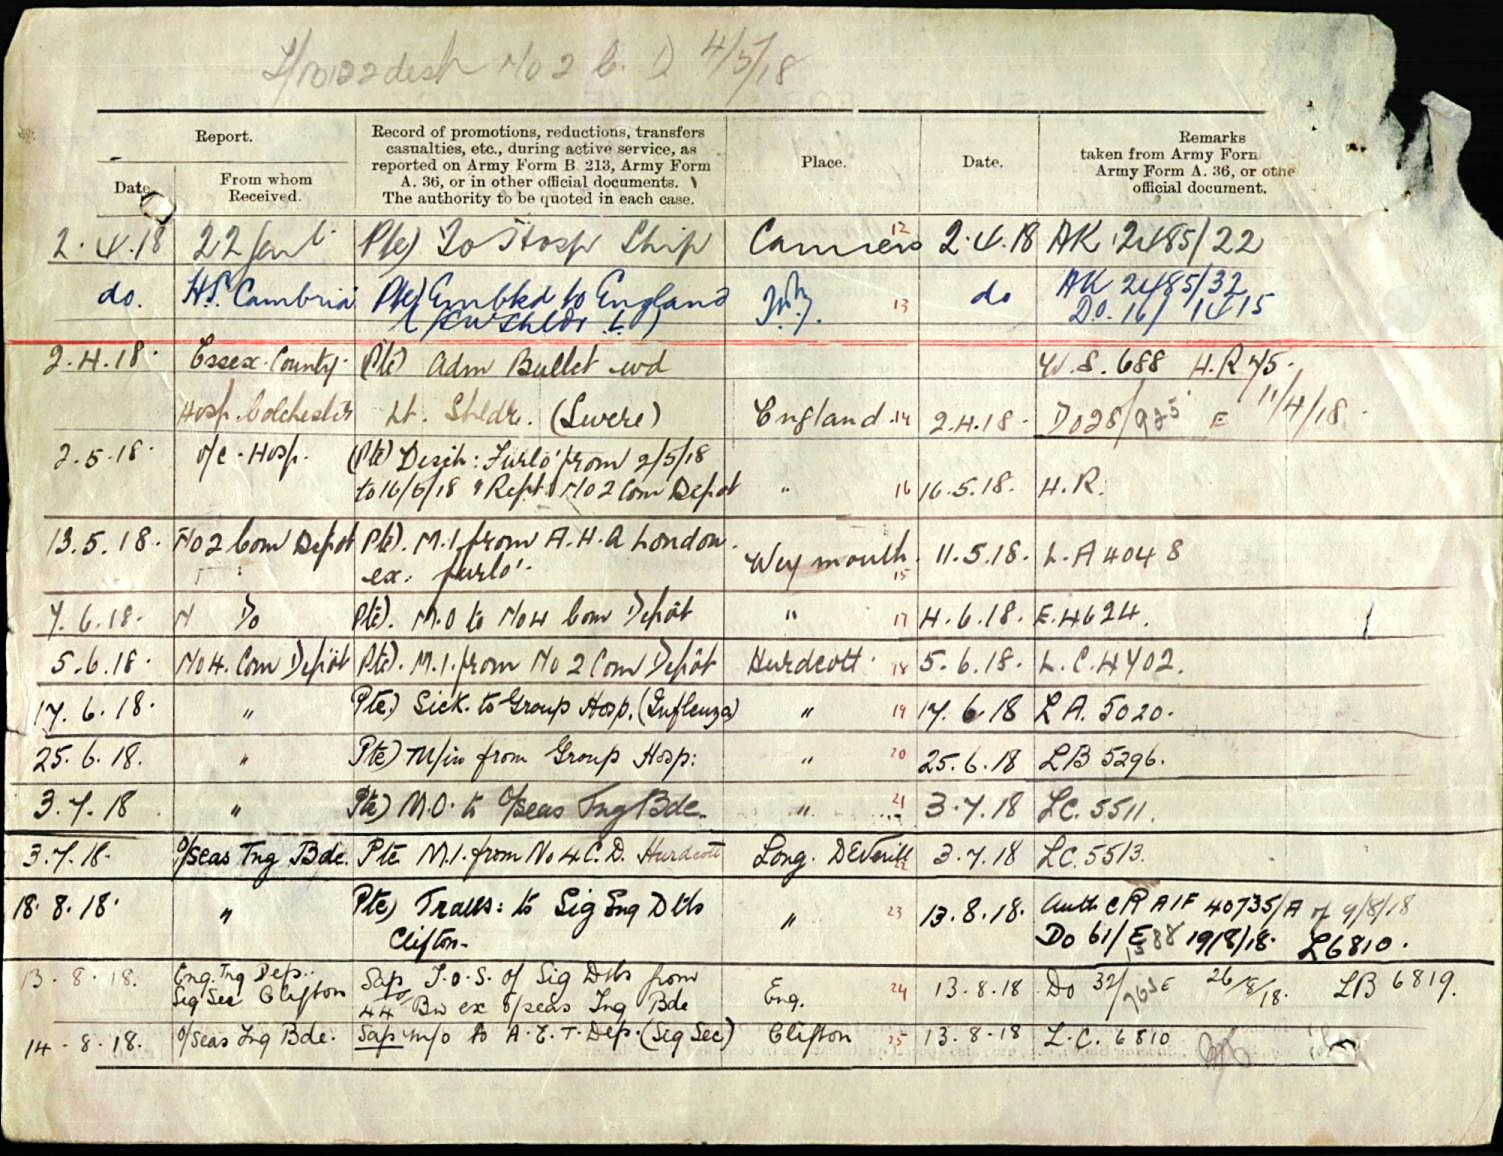 No 2 C. D 4/5/18
Report.
Record of promotions, reductions, transfers
casualties, etc., during active service, as
reported on Army Form B. 213, Army Form
A. 36, or in other official documents.
The authority to be quoted in each case.
Place.
Date.
Remarks
taken from Army Form
Army Form A. 36, or othe
official document.
Date
From whom
Received.
2.4.18 22 Genl. Pte) To Hosp Ship Camiers 12 2.4.18 AK 2485/22
do. H.S. Cambria Pte) Embkd to England 13 do AK 2485/32
(GSW Shldr. L) D.O. 16/1415
2.4.18. Essex County. Pte) Adm Bullet wd W.S. 688 H.R 75.
Hosp. Colchester Lt. Shldr. (Severe) England. 14 2.4.18. DO28/925 E 11/4/18.
2.5.18. o/c. Hosp. (Pte) Disch: Furlo' from 2/5/18
to 16/5/18 & Rept. No 2 Com Depot " 16 16.5.18. H.R.
13.5.18. No 2 Com Depot Pte). M.I. from A.H.Q London.
ex. furlo'. Weymouth. 15 11.5.18. L.A 4048
7.6.18. " Do Pte). M.O to No 4 Com Depôt " 17 4.6.18. E.4624.
5.6.18. No 4. Com Depôt Pte). M.I. from No 2 Com Depôt Hurdcott. 18 5.6.18. L.C.4702.
17.6.18. " Pte.) Sick. to Group Hosp. (Influenza) " 19 17.6.18 L A. 5020.
25.6.18. " Pte) M/in from Group Hosp: " 20 25.6.18 LB 5296.
3.7.18 " Pte) M.O. to O/seas Tng Bde. " 21 3.7.18 LC. 5511.
3.7.18. O/seas Tng Bde. Pte M.I. from No 4 C.D. Hurdcott Long. DEVerill 22 3.7.18 LC. 5513.
18.8.18. " Pte) Trans: to Sig Eng Dtls " 23 13.8.18. Auth C R AIF 40735/A of 9/8/18
Clifton. Do 61/E 19/8/18. L6810.
13.8.18. Eng. Tng Dep. Sap T.O.S. of Sig Dtls from
Sig Sec Clifton 44 Bn ex O/seas Tng Bde Eng. 24 13.8.18 Do 32/ E 26/8/18. LB 6819.
14.8.18. O/seas Tng Bde. Sap m/o to A.E.T. Dep. (Sig Sec) Clifton 25 13.8.18 L.C. 6810